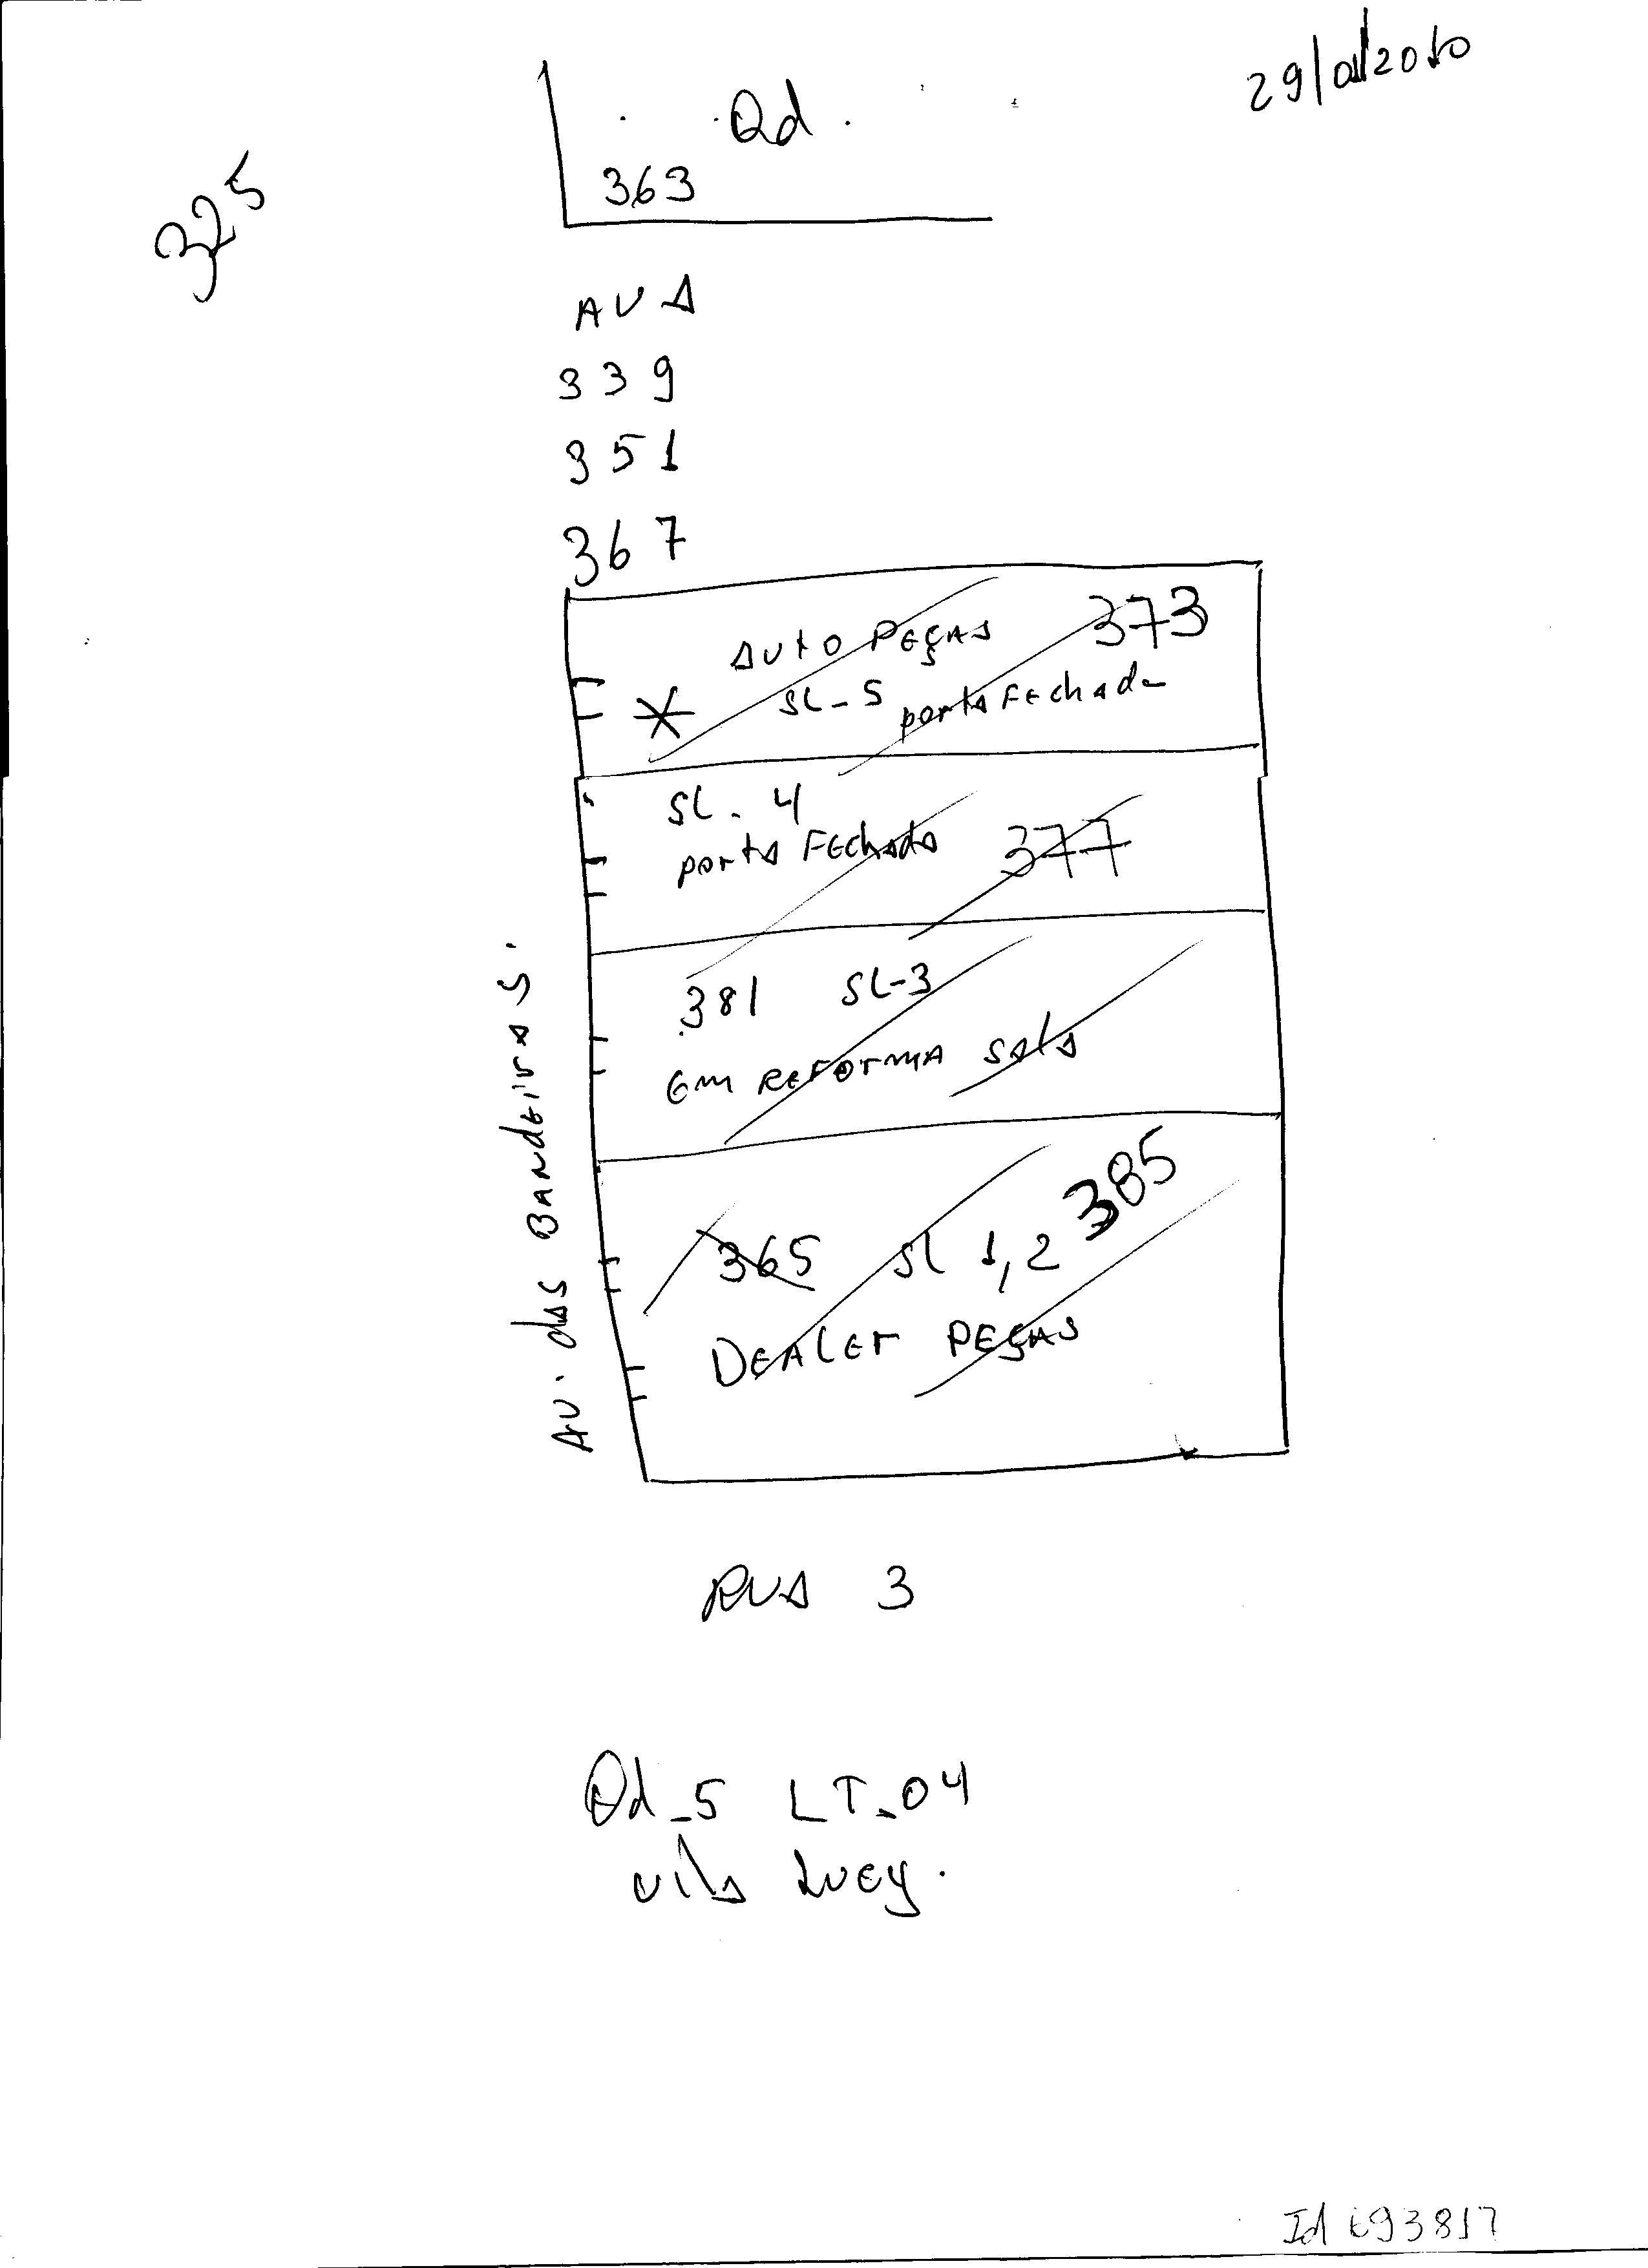 29/01/2010
Qd.
363
325
AVA
339
351
367
AUTO PEÇAS 373
SL-5 porta FEchada
SL. 4
porta FEchada 377
381 SL-3
Em REFORMA sala
365 SL 1,2 385
DEALER PEÇAS
AV. das BANdEirAS.
RUA 3
Qd-5 LT-04
vila Lucy.
Id 693817